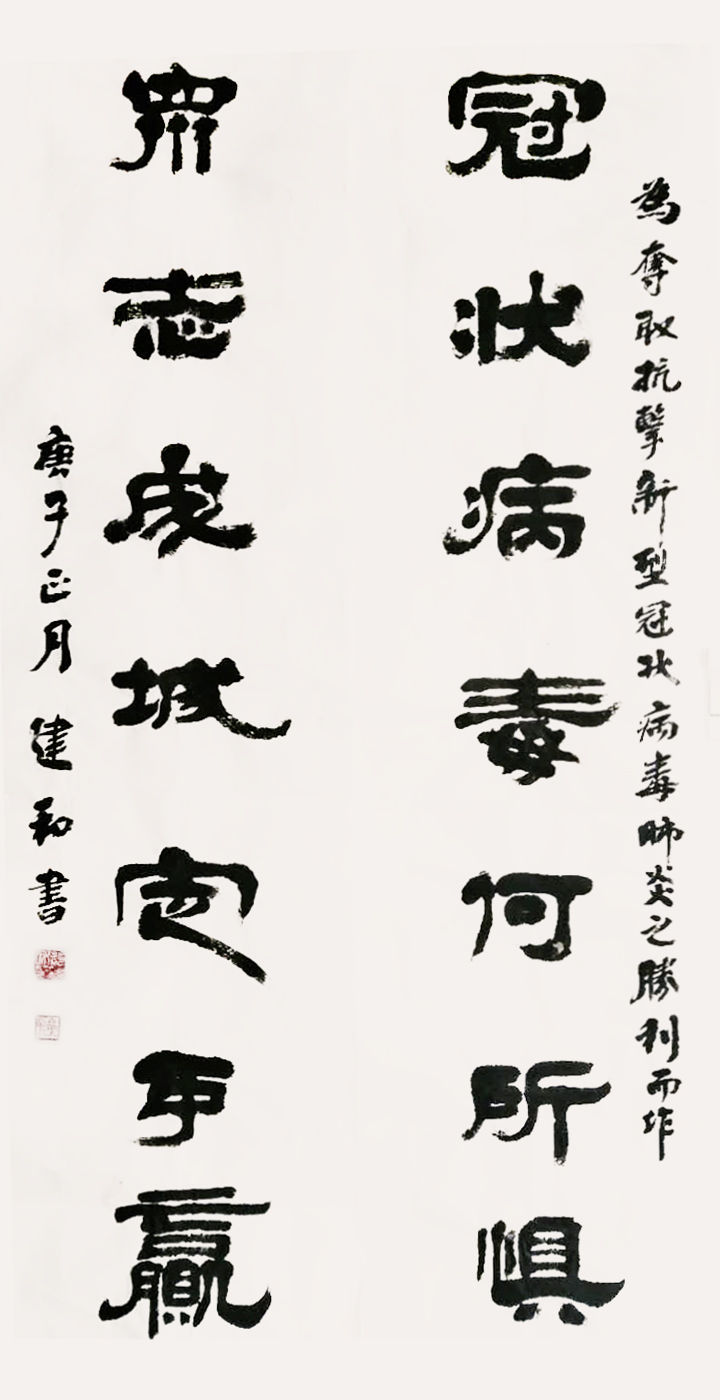 為奪取抗擊新型冠状病毒肺炎之勝利而作
冠状病毒何所惧
衆志成城定爭贏
庚子正月建書